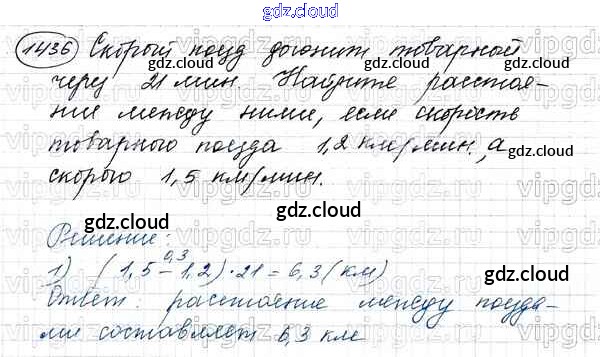 gdz.cloud
1436 Скорый поезд догонит товарной
через 21 мин. Найдите расстоя-
ние между ними, если скорость
товарного поезда 1,2 км/мин., а
скорого 1,5 км/мин.
gdz.cloud
gdz.cloud
gdz.cloud
Решение:
0,3
1) (1,5 - 1,2) · 21 = 6,3 (км)
Ответ: расстояние между поезда-
ми составляет 6,3 км
gdz.cloud
gdz.cloud
gdz.cloud